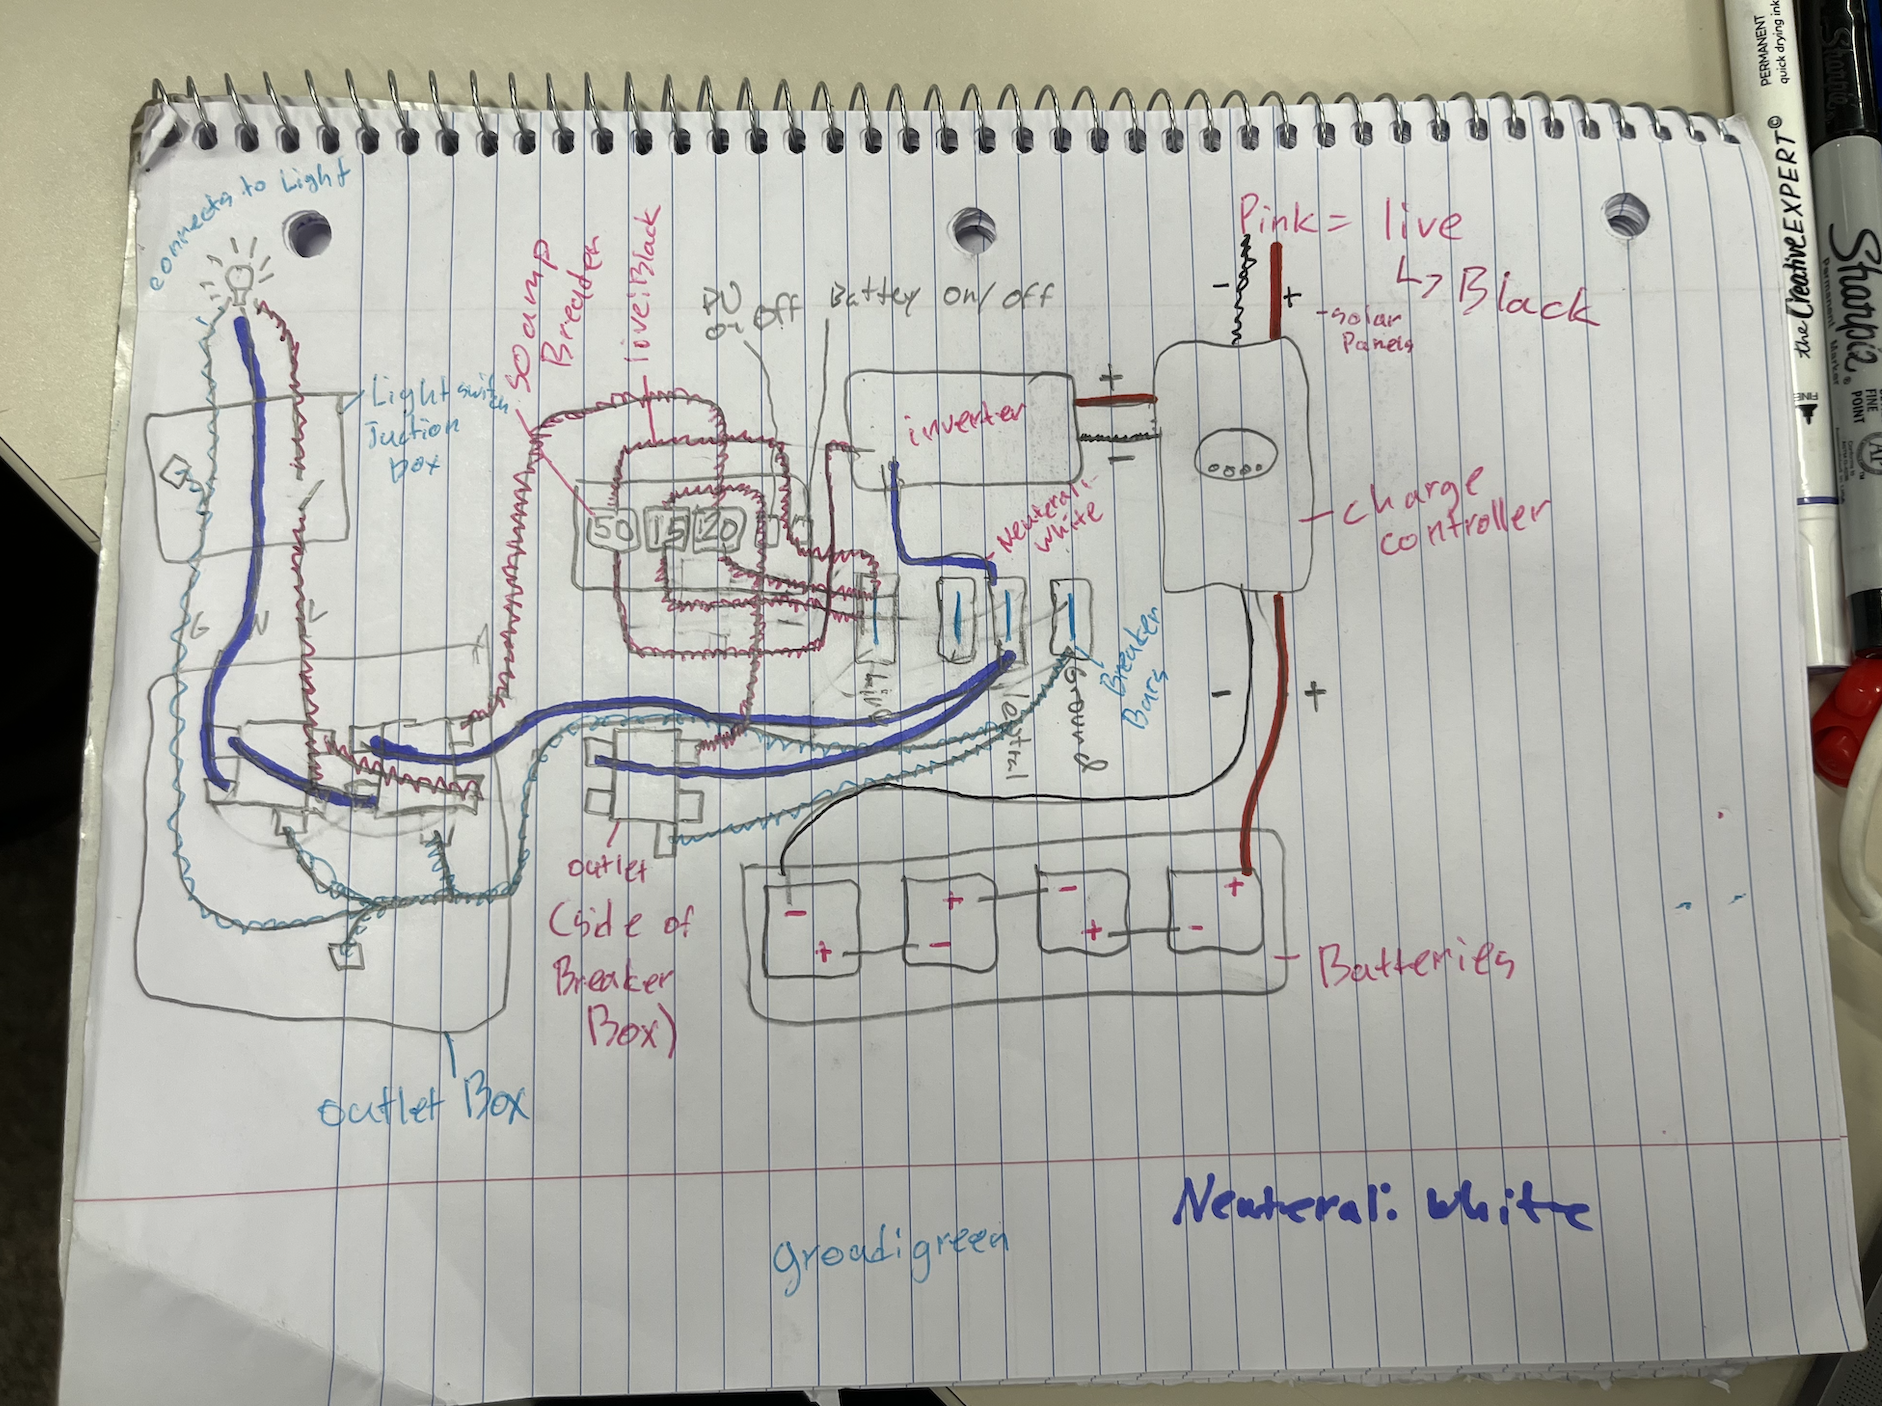 connects to Light
Light switch
Juction
box
50 amp
Breader
live:Black
off
Battery on/off
Pink = live
↳ Black
- +
-solar
Panels
inverter
+
-
Neuteral:
white
charge
controller
50 15 20
G N L
live
Neutral
Ground
Breaker
Bars
- +
outlet
(side of
Breaker
Box)
- + + - - + + -
Batteries
outlet Box
Neuteral: white
groud:green
PERMANENT
quick drying ink
the CreativeEXPERT©
Sharpie.
FINE
POINT
Permanent Marker
AP
FINE